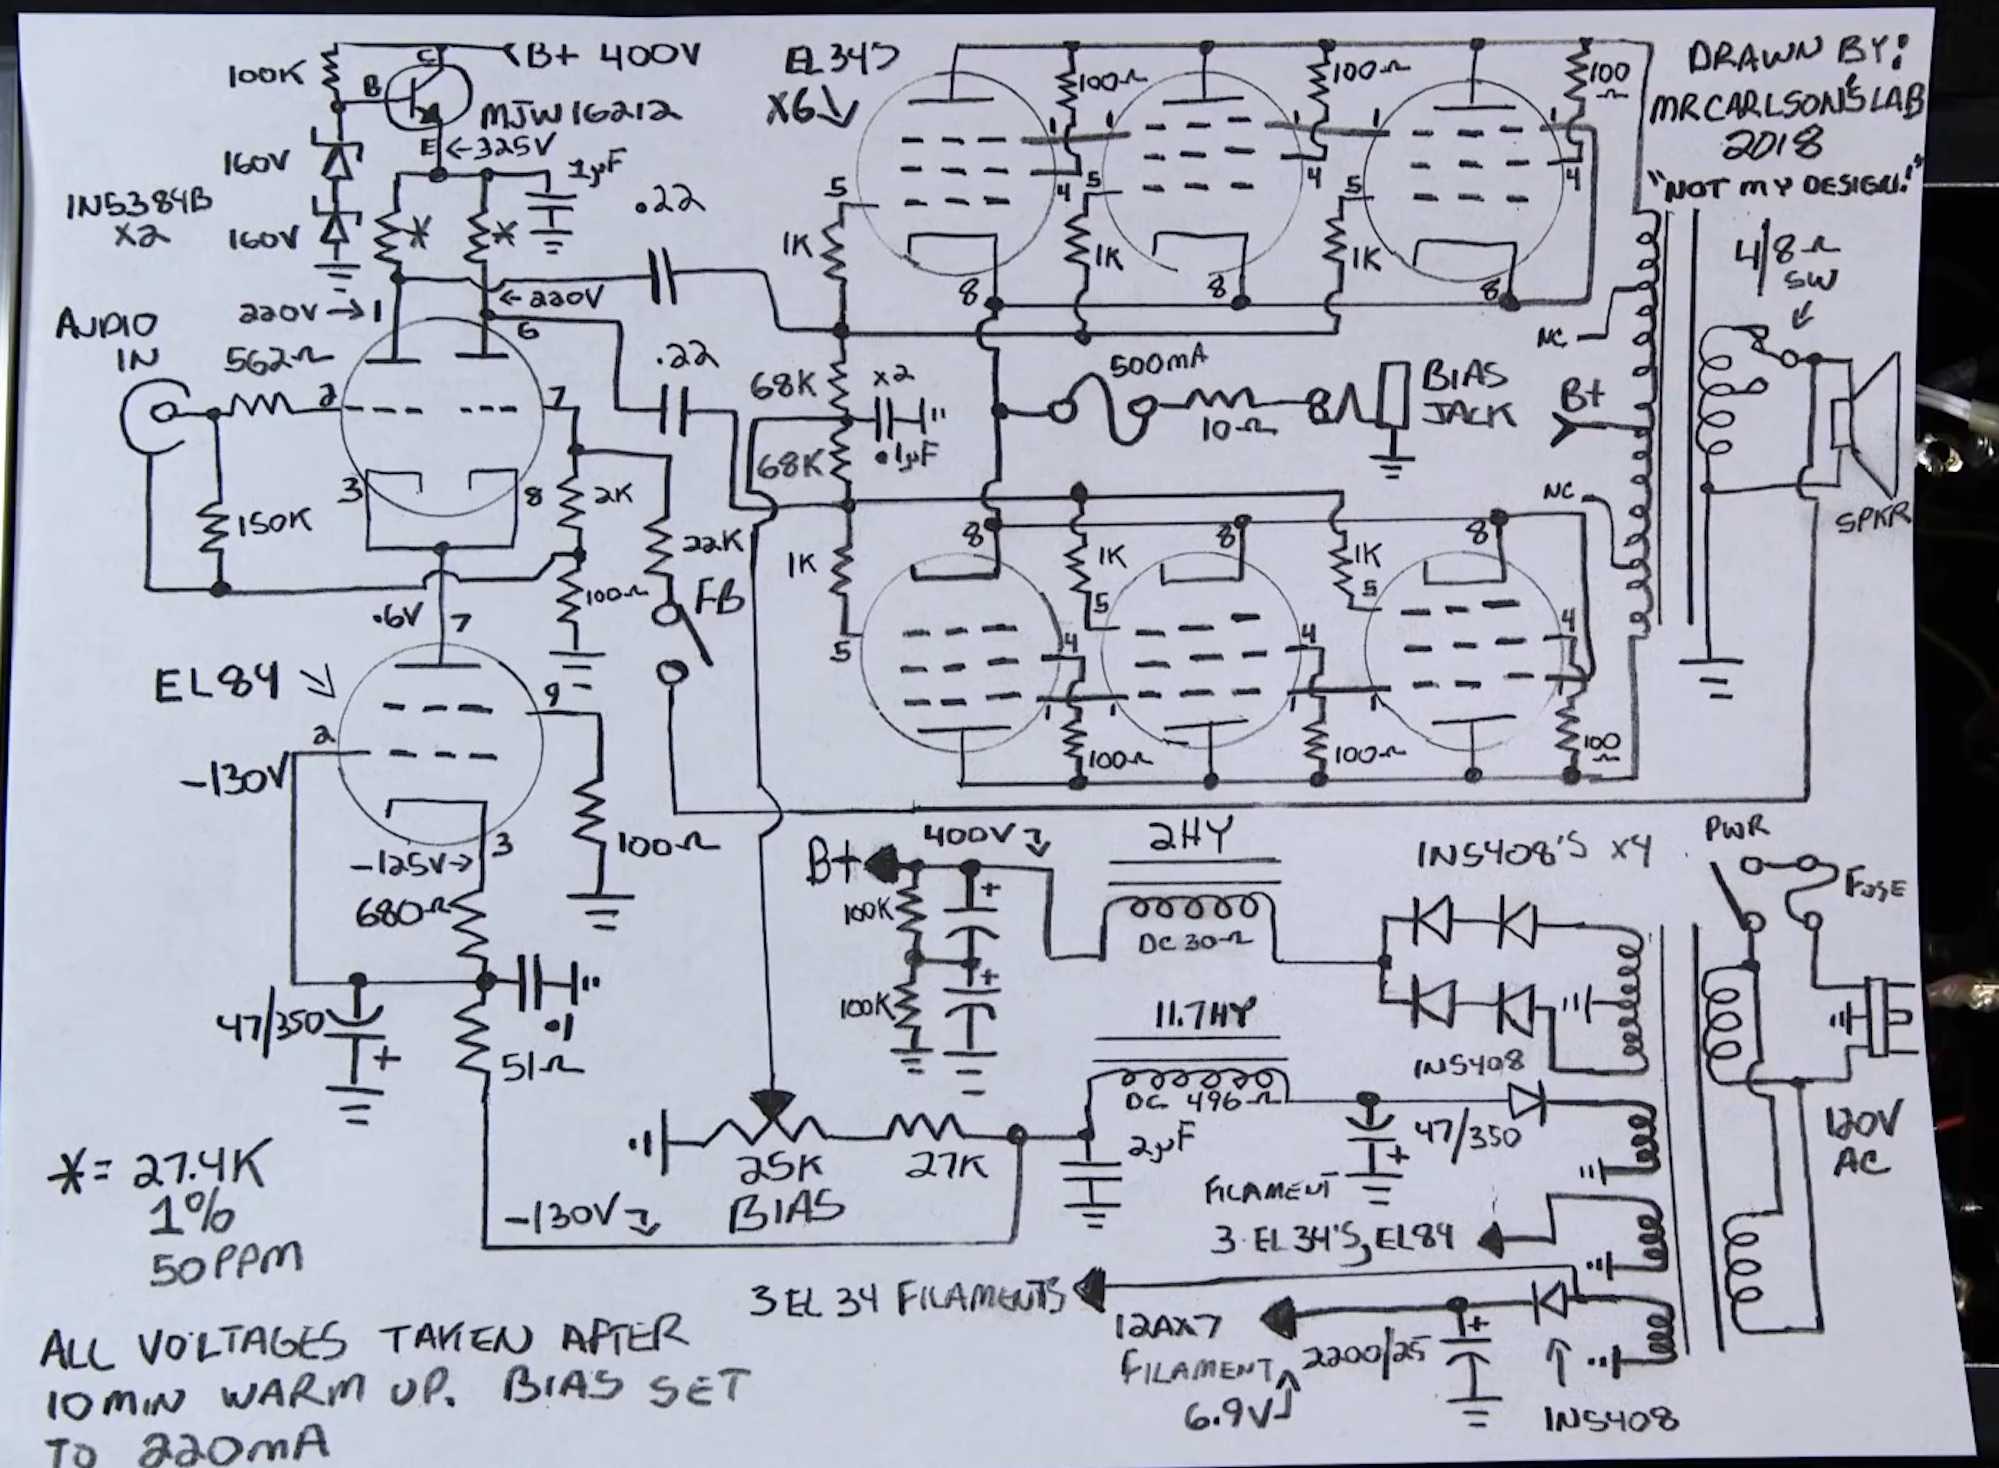 100K
C
B+ 400V
B
MJW16212
160V
E ←325V
1N5384B
X2
160V
1µF
.22
*
*
220V→
1
←220V
6
AUDIO
IN
562Ω
2
7
3
8
2K
150K
22K
100Ω
FB
.6V
7
EL84
9
2
-130V
100Ω
-125V→
3
680Ω
47/350
+
.1
51Ω
*= 27.4K
1%
50PPM
ALL VOLTAGES TAKEN AFTER
10MIN WARM UP. BIAS SET
TO 220MA
EL34S
X6
100Ω
100Ω
100
Ω
1
1
1
1
1
4
4
4
5
5
5
1K
1K
1K
8
8
8
.22
68K
X2
68K
.1µF
500MA
10Ω
BIAS
JACK
1K
1K
1K
8
8
8
5
5
5
4
4
4
1
1
1
1
100Ω
100Ω
100
Ω
DRAWN BY:
MRCARLSON'S LAB
2018
"NOT MY DESIGN!"
4/8Ω
SW
NC
B+
NC
SPKR
400V
B+
+
100K
+
100K
2HY
DC 30Ω
1N5408'S X4
PWR
FUSE
11.7HY
DC 496Ω
1N5408
47/350
+
2µF
120V
AC
25K
BIAS
27K
-130V
FILAMENT
3 EL34'S, EL84
3 EL34 FILAMENTS
12AX7
FILAMENT
6.9V
2200/25
+
1N5408